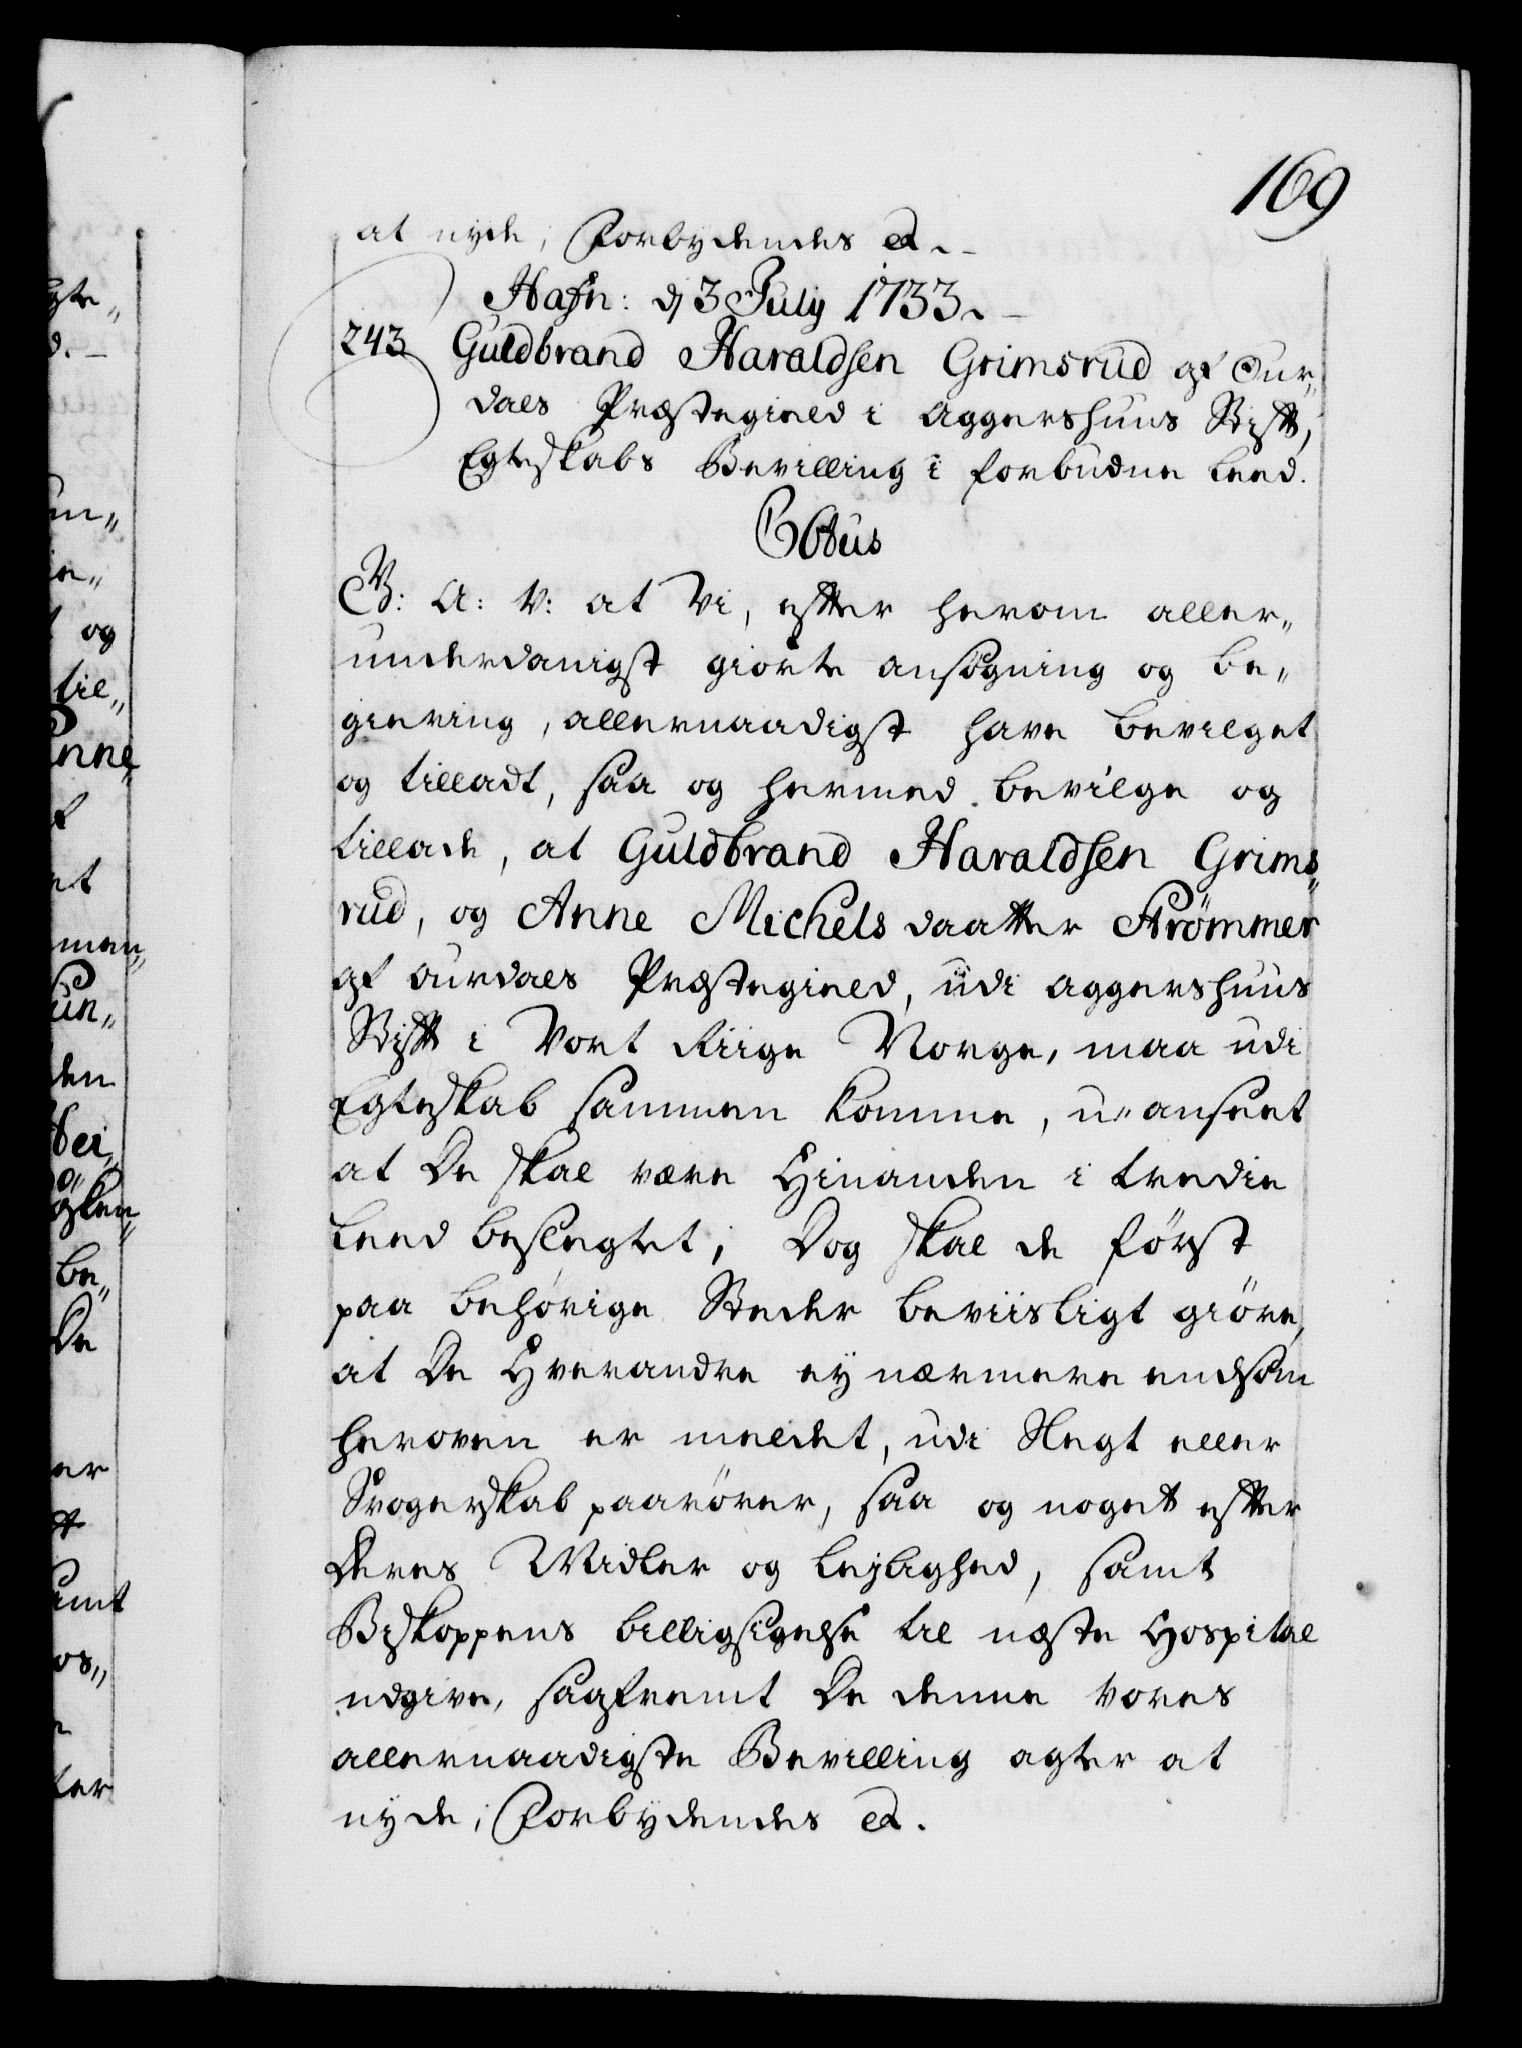 169
at nyde, Forbydendes &.
Hafn: d 3 July 1733.
243 Guldbrand Haraldsen Grimsrud af Our„
dals Præstegield i Aggershuus Stift,
Egteskabs Bevilling i forbudne Leed.
C 6tus
G: A: V: at Vi, efter herom aller„
underdanigst giorte ansøgning og be„
giering, allernaadigst have bevilget
og tilladt, saa og hermed bevilge og
tillade, at Guldbrand Haraldsen Grims„
rud, og Anne Michels daatter Strömmer
af Ourdals Præstegield, udi Aggershuus
Stift i Vort Riige Norge, maa udi
Egteskab sammen komme, u„anseet
at De skal være Hinanden i tredie
Leed beslegtet; Dog skal de först
paa behörige Steder beviisligt giöre,
at De Hverandre ey nærmere end som
heroven er meldet, udi Slegt eller
Svogerskab paarörer, saa og noget efter
Deres Midler og Lejlighed, samt
Biskoppens billigsigelse til næste Hospital
udgive, saafremt De denne Vores
allernaadigste Bevilling agter at
nyde; Forbydendes &.